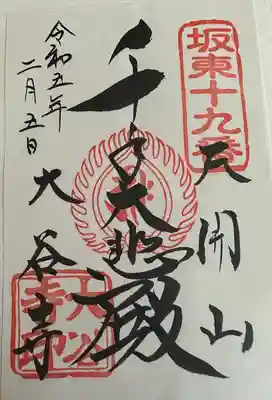 坂東十九番
天開山
千手大悲殿
大谷寺
令和五年
二月五日